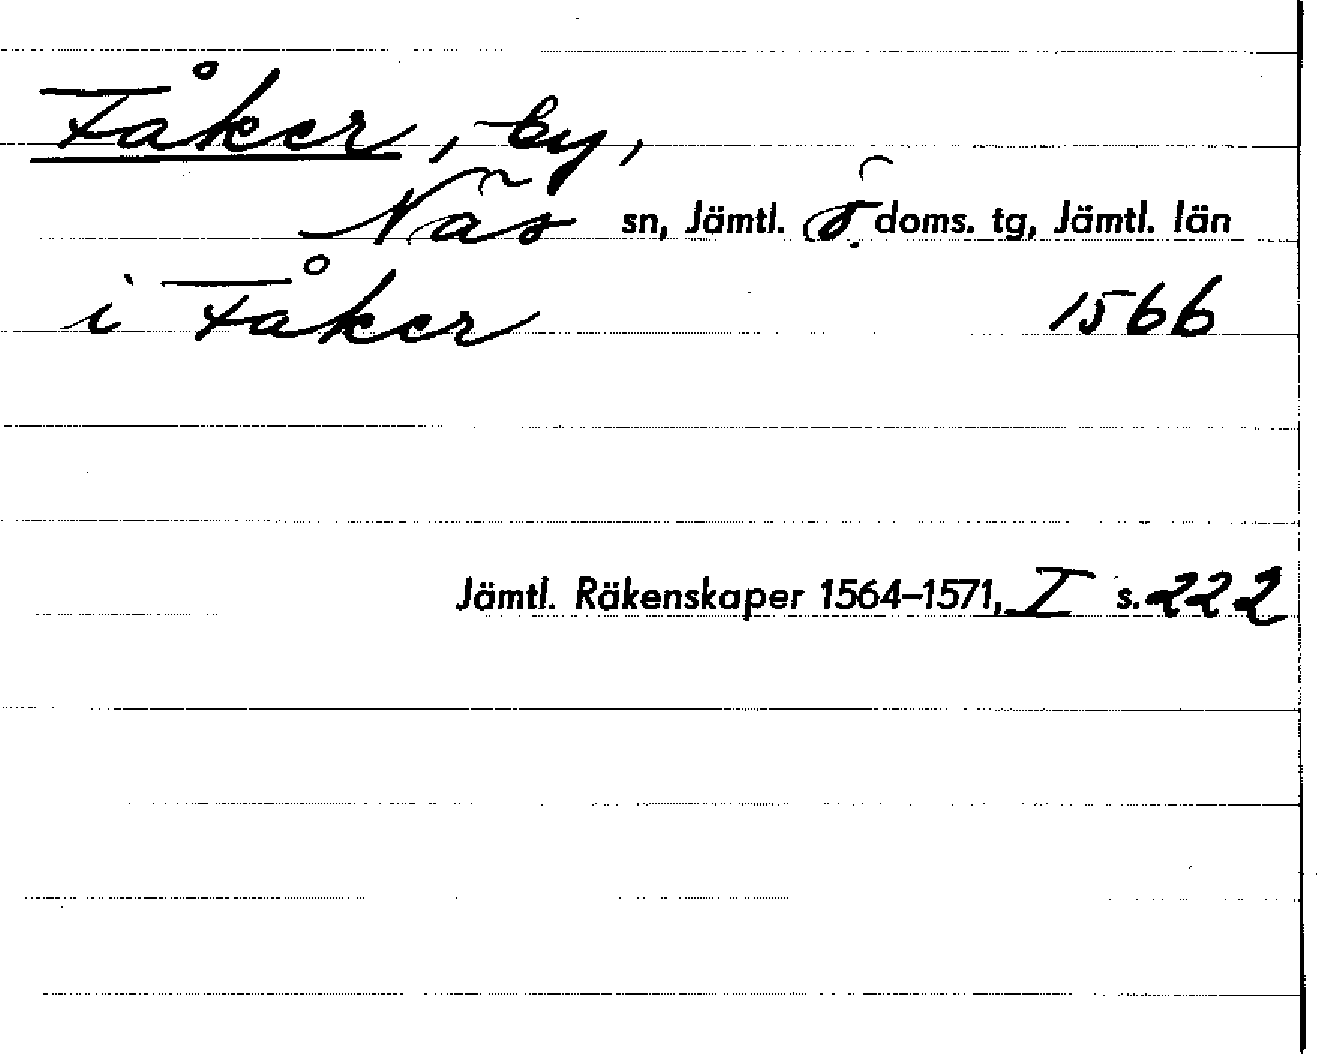 Fåker, by,
Näs sn, Jämtl. ö. doms. tg, Jämtl. län
i Fåker 1566
Jämtl. Räkenskaper 1564–1571, I s. 222